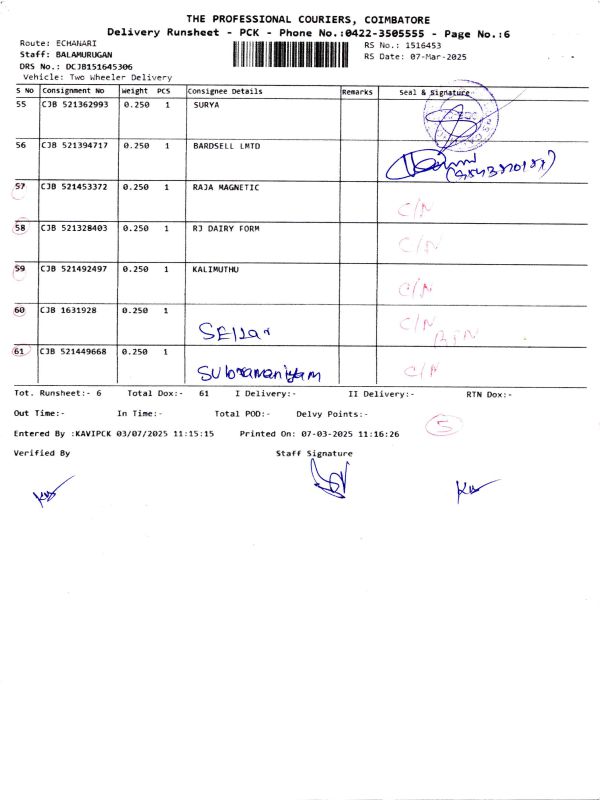 THE PROFESSIONAL COURIERS, COIMBATORE
Delivery Runsheet - PCK - Phone No.:0422-3505555 - Page No.:6
Route: ECHANARI
Staff: BALAMURUGAN
DRS No.: DCJB151645306
Vehicle: Two Wheeler Delivery
RS No.: 1516453
RS Date: 07-Mar-2025
S No Consignment No Weight PCS Consignee Details Remarks Seal & Signature
55 CJB 521362993 0.250 1 SURYA
56 CJB 521394717 0.250 1 BARDSELL LMTD
57 CJB 521453372 0.250 1 RAJA MAGNETIC C/N
58 CJB 521328403 0.250 1 RJ DAIRY FORM C/N
59 CJB 521492497 0.250 1 KALIMUTHU C/N
60 CJB 1631928 0.250 1 SELLAR C/N RTN
61 CJB 521449668 0.250 1 SUbramaniyam C/N
Tot. Runsheet:- 6 Total Dox:- 61 I Delivery:- II Delivery:- RTN Dox:-
Out Time:- In Time:- Total POD:- Delvy Points:- 5
Entered By :KAVIPCK 03/07/2025 11:15:15 Printed On: 07-03-2025 11:16:26
Verified By Staff Signature